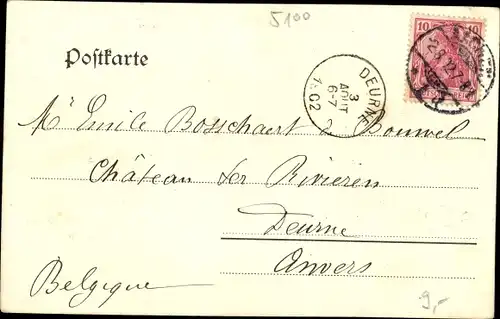 5100
Postkarte
10 10
DEURNE
3
AOUT
6-7
1902
Mr Emile Bosschaert de Bouwel
Château Ter Rivieren
Deurne
Anvers
Belgique
9,-